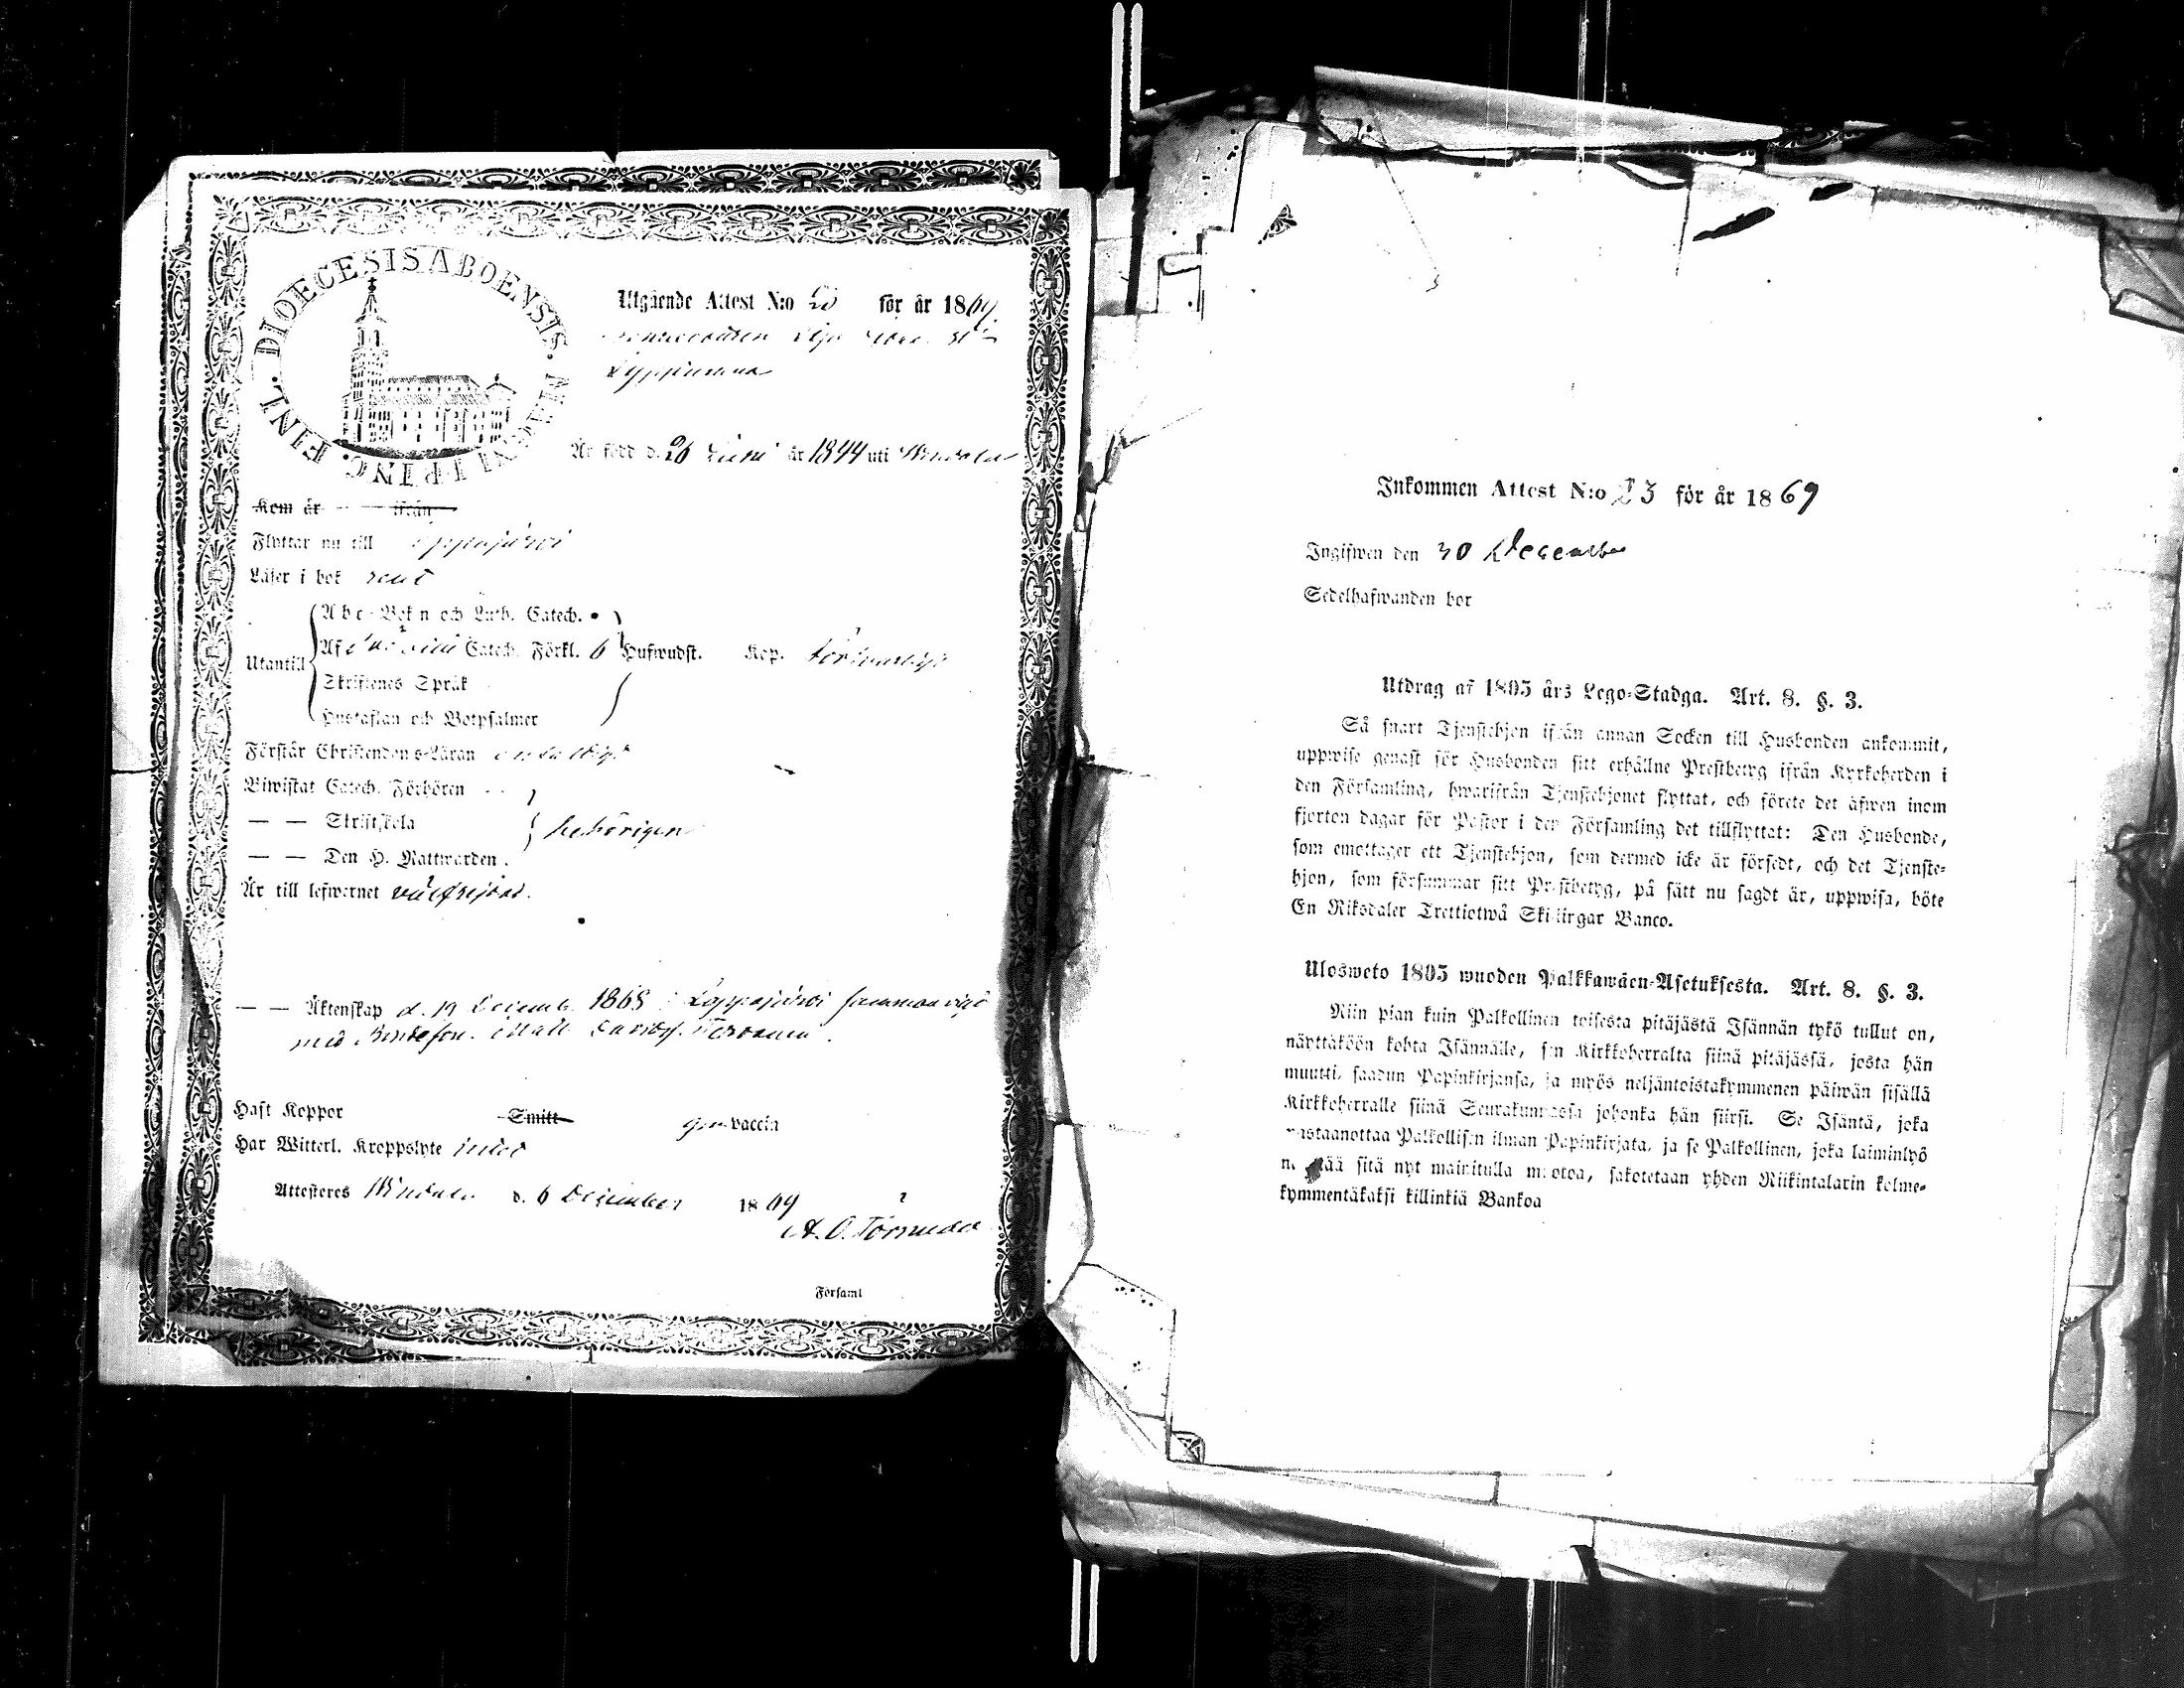 DIOECESIS ABOENSIS. MAGN. PRINC. FINL.
Utgående Attest N:o för år 1869
Är född d. 26 Juni år 1844 uti Windala
Kom år ifrån
Flyttar nu till Lappajärvi
Läser i bok rent
Utantill
Abc-Boken och Luth. Catech.
Af Catech. Förkl. 6 Hufwudst. Kop. försvarligt
Skriftenes Språk
Hustaflan och Botpsalmer
Förstår Christendoms-Läran enfaldigt
Biwistat Catech. Förhören
— — Skriftskola
behörigen
— — Den H. Nattwarden.
Är till lefwernet välfrejdad.
— — Äktenskap d. 19 Decemb. 1868 i Lappajärvi sammanvigd
med Bondeson. Matt
Haft Koppor Smitt gen vaccin
Har Witterl. Kroppslyte intet
Attesteres Windala d. 6 December 1869
A. O. Törnudd
Församl
Inkommen Attest N:o 23 för år 1869
Ingifwen den 30 December
Sedelhafwanden bor
Utdrag af 1805 års Lego-Stadga. Art. 8. §. 3.
Så snart Tjenstehjon ifrån annan Socken till Husbonden ankommit,
uppwise genast för Husbonden sitt erhållne Prestbetyg ifrån Kyrkoherden i
den Församling, hwarifrån Tjenstehjonet flyttat, och förete det äfwen inom
fjorton dagar för Pastor i den Församling det tillflyttat: Den Husbonde,
som emottager ett Tjenstehjon, som dermed icke är försedt, och det Tjenste-
hjon, som försummar sitt Prestbetyg, på sätt nu sagdt är, uppwisa, böte
En Riksdaler Trettiotwå Skillingar Banco.
Ulosweto 1805 wuoden Palkkawäen-Asetuksesta. Art. 8. §. 3.
Niin pian kuin Palkollinen toisesta pitäjästä Isännän tykö tullut on,
näyttäköön kohta Isännälle, sen Kirkkoherralta siinä pitäjässä, josta hän
muutti, saadun Papinkirjansa, ja myös neljäntoistakymmenen päiwän sisällä
Kirkkoherralle siinä Seurakunnassa johonka hän siirsi. Se Isäntä, joka
wastaanottaa Palkollisen ilman Papinkirjata, ja se Palkollinen, joka laiminlyö
näyttää sitä nyt mainitulla muotoa, sakotetaan yhden Riikintalarin kolme-
kymmentäkaksi killinkiä Bankoa